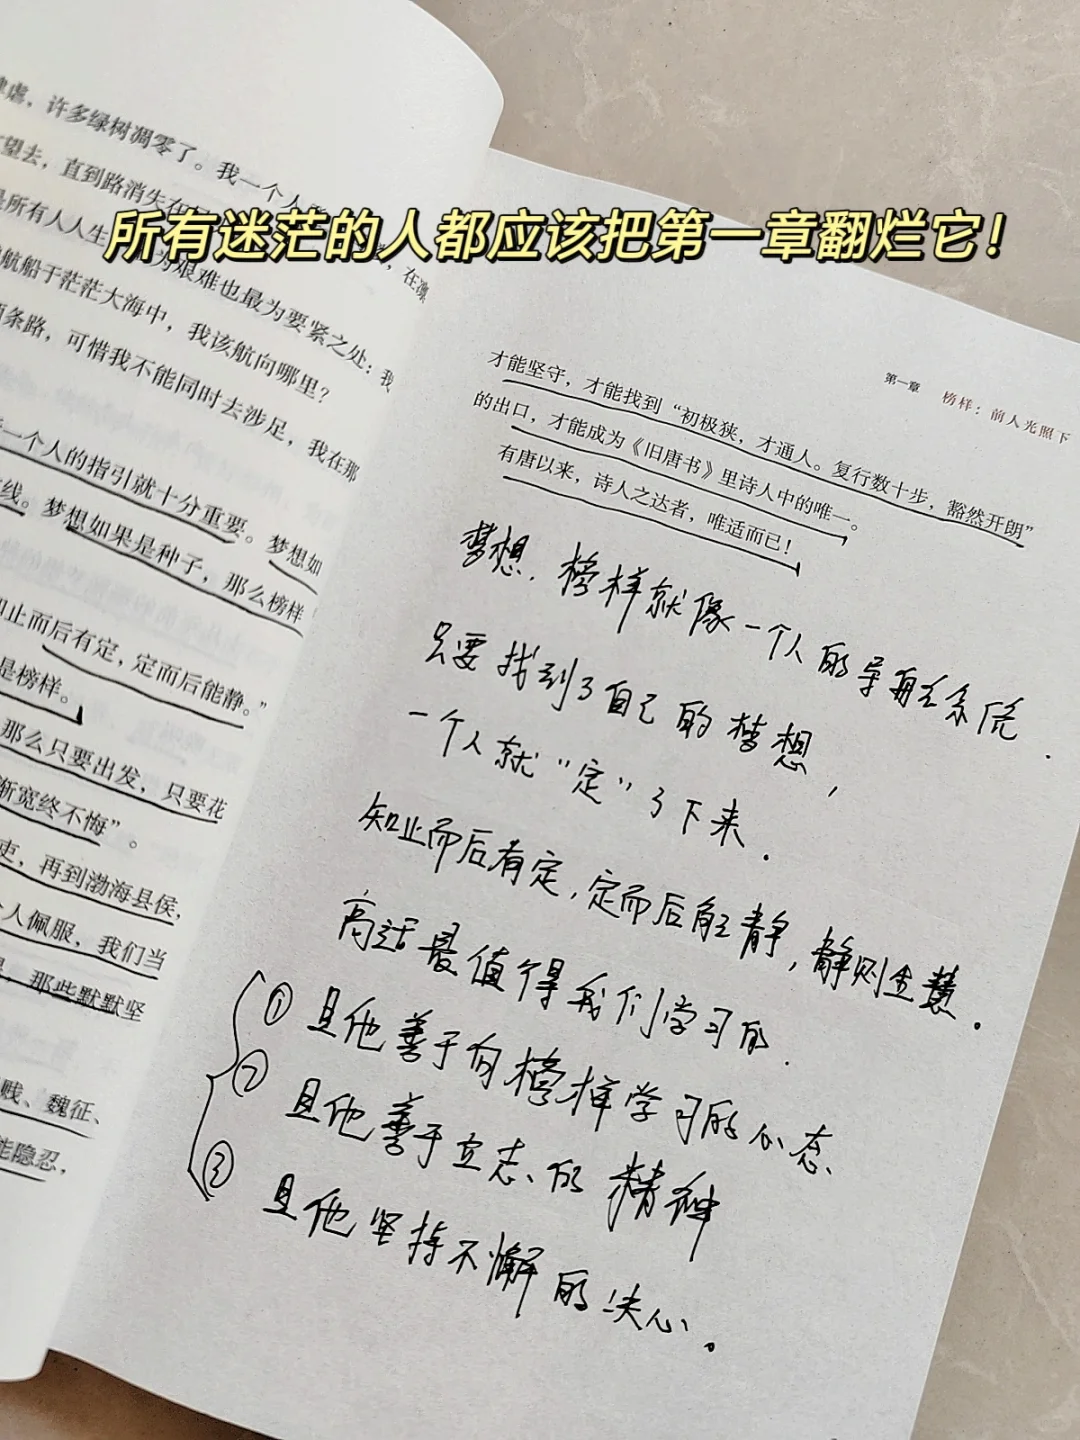 肆虐，许多绿树凋零了。我一个人
望去，直到路消失在
所有迷茫的人都应该把第一章翻烂它！
是所有人人生
为艰难也最为要紧之处：我
航船于茫茫大海中，我该航向哪里？
条路，可惜我不能同时去涉足，我在那
一个人的指引就十分重要。梦想如
线。梦想如果是种子，那么榜样
知止而后有定，定而后能静。”
是榜样。
那么只要出发，只要花
渐宽终不悔”。
吏，再到渤海县侯，
个人佩服，我们当
那些默默坚
贱、魏征、
能隐忍，
第一章 榜样：前人光照下
才能坚守，才能找到“初极狭，才通人。复行数十步，豁然开朗”
的出口，才能成为《旧唐书》里诗人中的唯一。
有唐以来，诗人之达者，唯适而已！
梦想、榜样就像一个人的导航系统.
只要找到了自己的梦想，
一个人就“定”了下来.
知止而后有定，定而后能静，静则生慧。
高适最值得我们学习的.
① 是他善于向榜样学习的心态
② 是他善于立志的精神
③ 是他坚持不懈的决心。